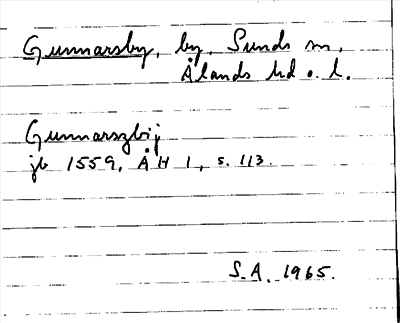 Gunnarsby, by, Sunds sn,
Ålands hd o. l.
Gunnarszbij
jb 1559, ÅH 1, s. 113.
S.A. 1965.